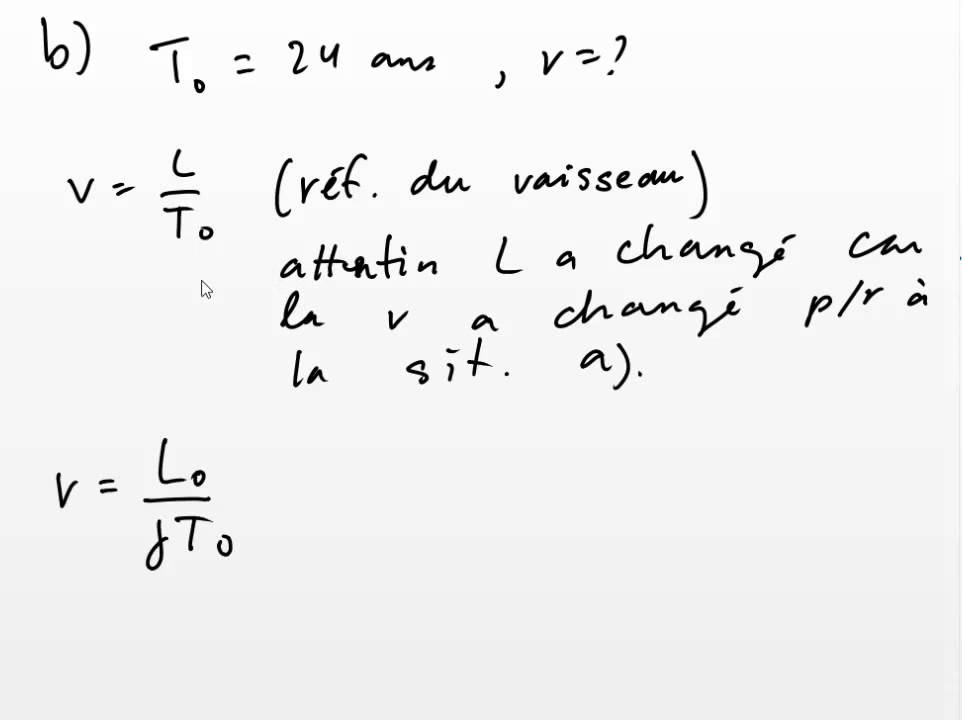 b) T₀ = 24 ans , v = ?
v = L/T₀ (réf. du vaisseau)
attentin L a changé car
la v a changé p/r à
la sit. a).
v = L₀/γT₀